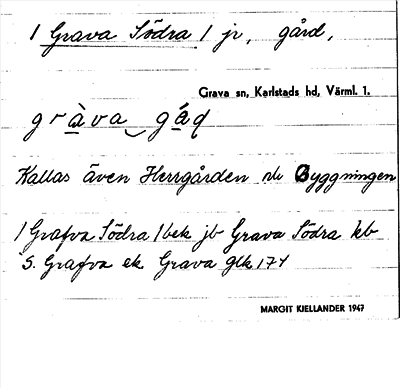 1 Grava Södra / jr, gård,
Grava sn, Karlstads hd, Värml. 1.
gràva gáɖ
Kallas även Herrgården el. Byggningen
/ Grafva Södra / bek jb Grava Södra kb
S. Grafva ek Grava glk 174
MARGIT KJELLANDER 1947